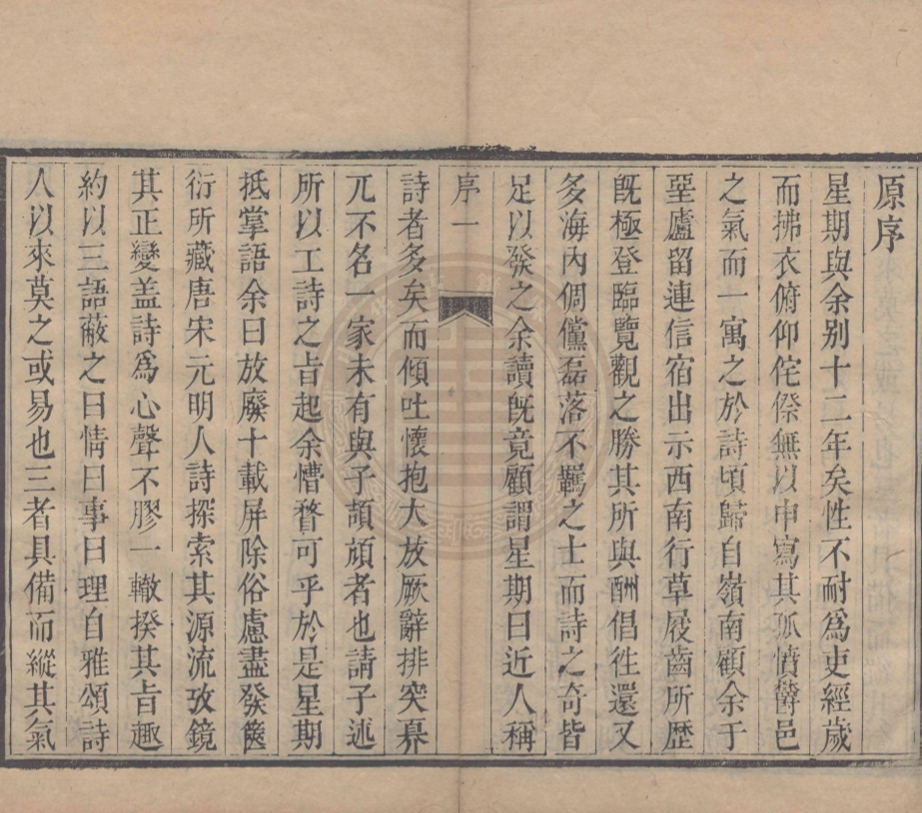 原序
星期與余别十二年矣性不耐爲吏經歲
而拂衣俯仰侘傺無以申寫其孤憤欝邑
之氣而一寓之於詩頃歸自嶺南顧余于
堊廬留連信宿出示西南行草屐齒所歷
旣極登臨覽觀之勝其所與酬倡徃還又
多海內倜儻磊落不羈之士而詩之奇皆
足以發之余讀旣竟顧謂星期曰近人稱
序一
詩者多矣而傾吐懷抱大放厥辭排突奡
兀不名一家未有與子頡頏者也請子述
所以工詩之旨起余懵瞀可乎於是星期
抵掌語余曰放廢十載屏除俗慮盡發篋
衍所藏唐宋元明人詩探索其源流攷鏡
其正變盖詩爲心聲不膠一轍揆其旨趣
約以三語蔽之曰情曰事曰理自雅頌詩
人以來莫之或易也三者具備而縱其氣